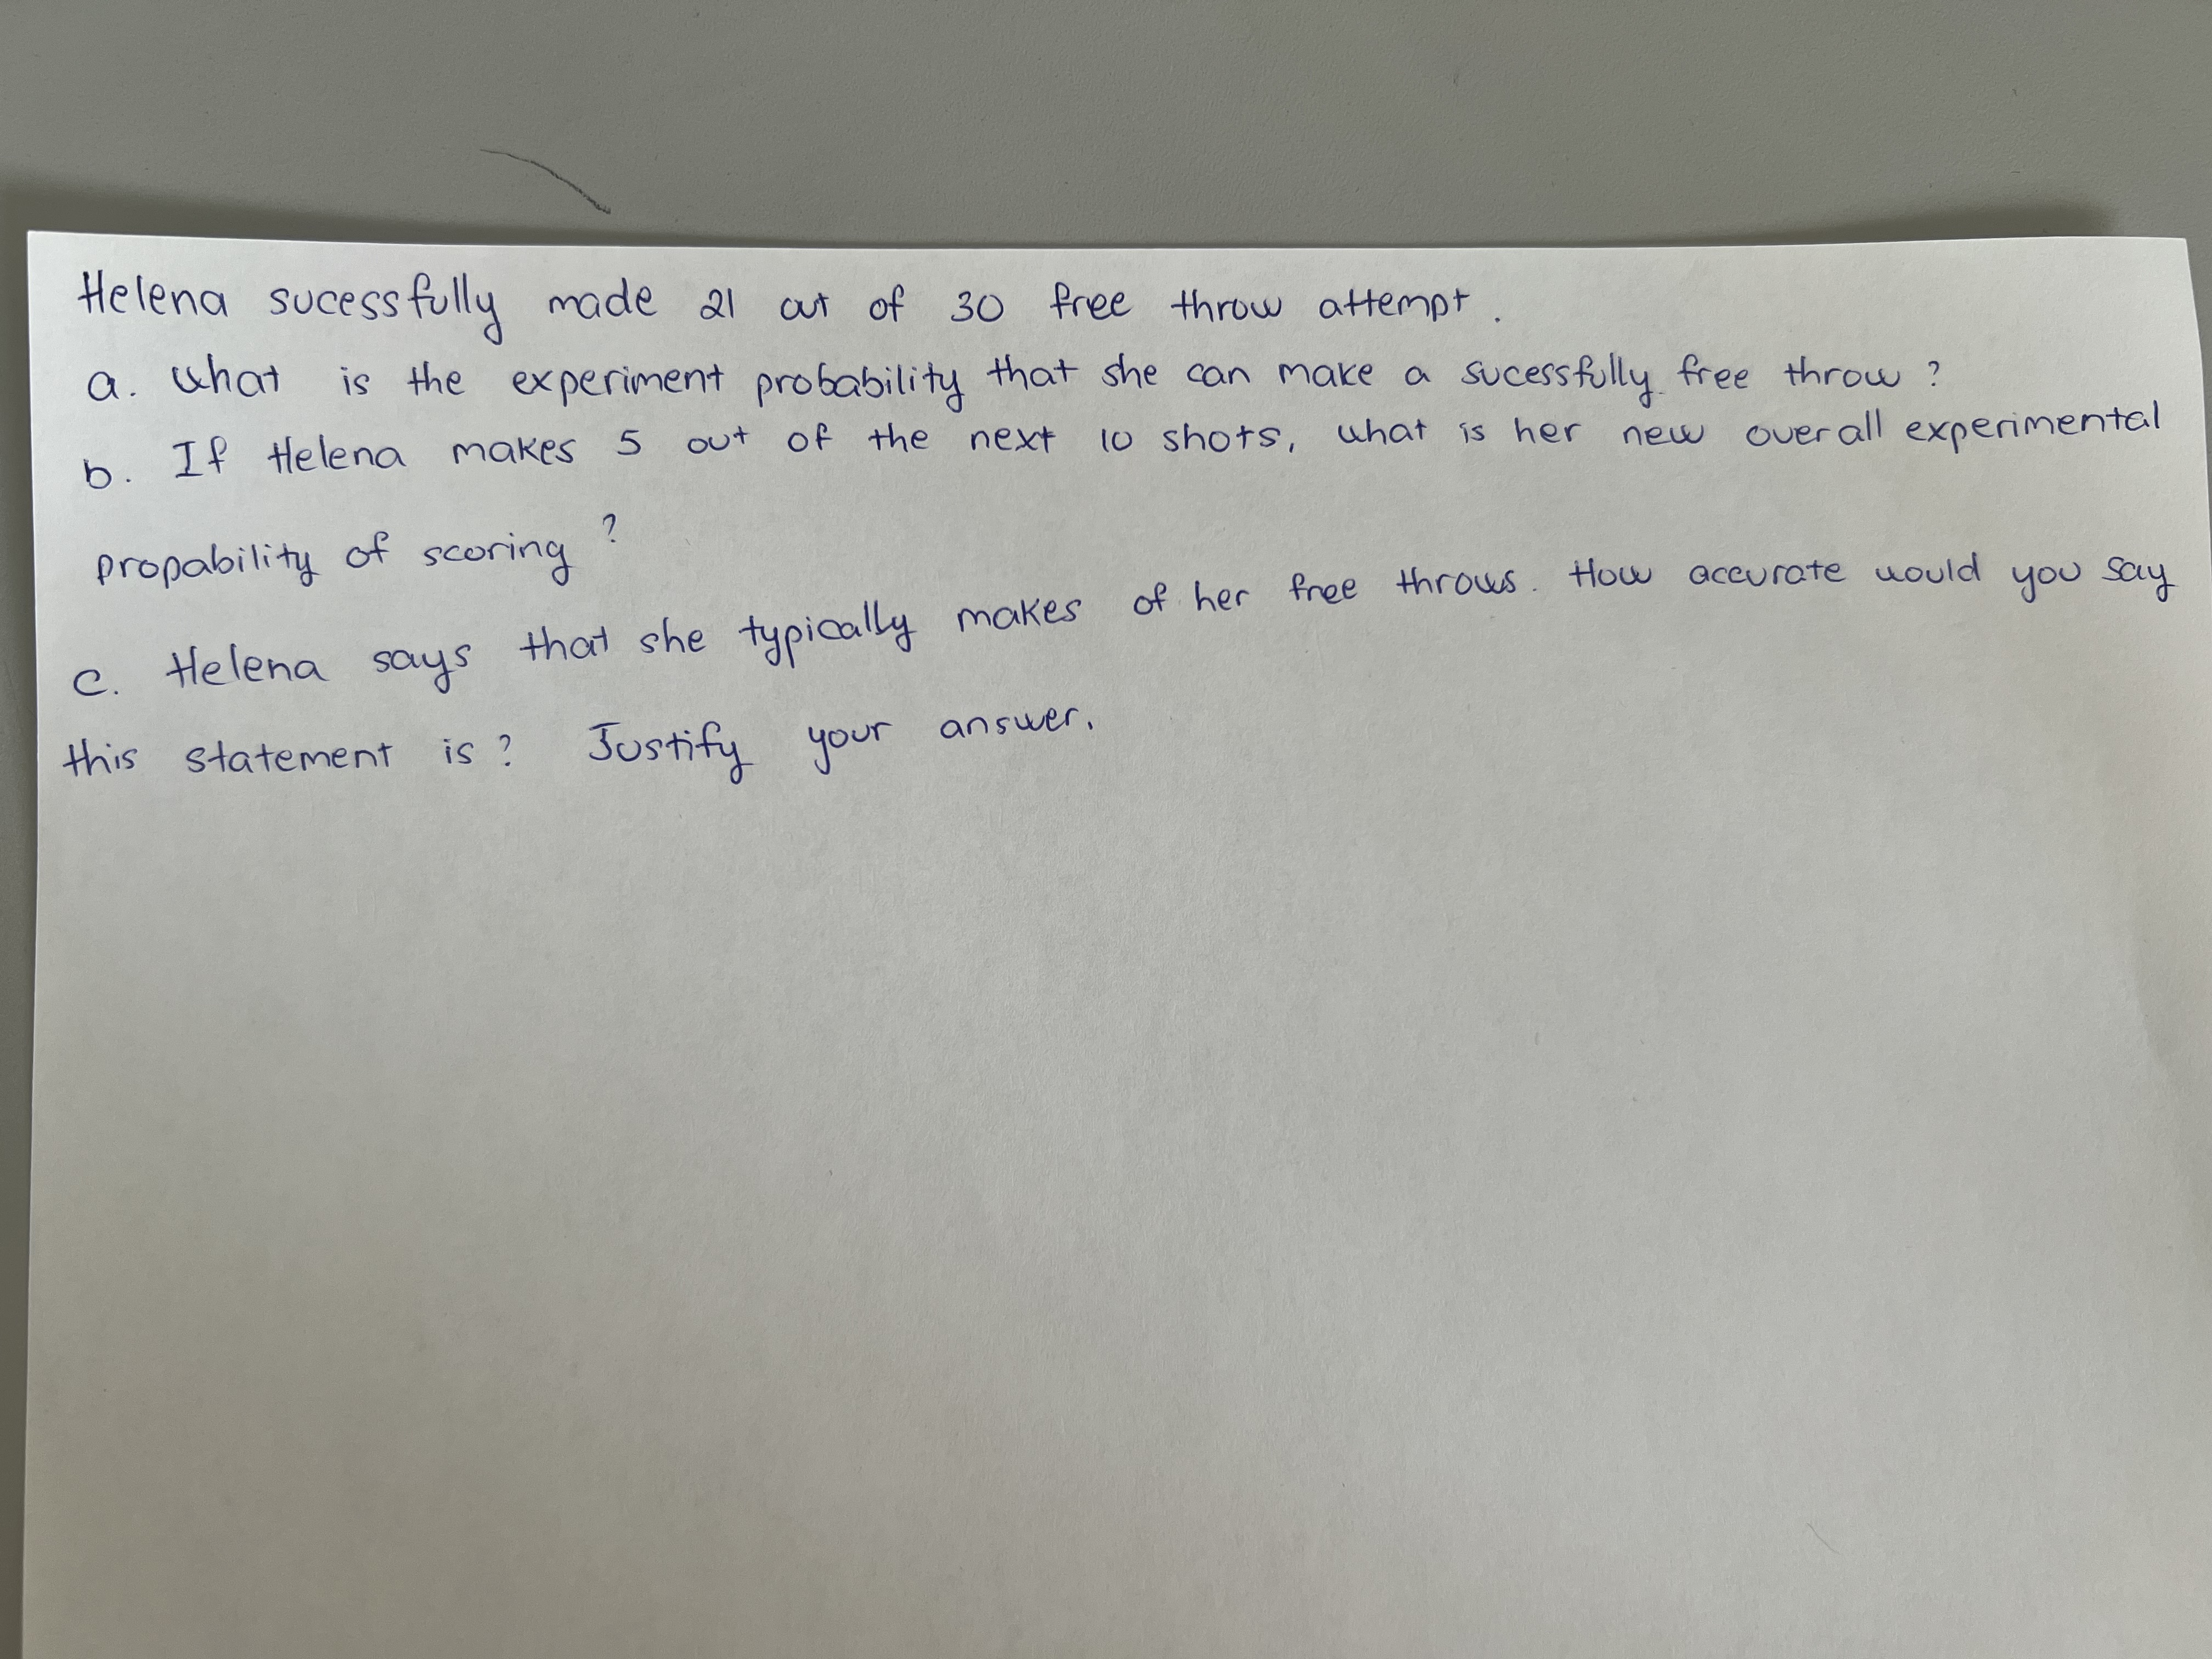 Helena sucessfully made 21 out of 30 free throw attempt.
a. What is the experiment probability that she can make a sucessfully free throw?
b. If Helena makes 5 out of the next 10 shots, what is her new overall experimental
propability of scoring?
c. Helena says that she typically makes of her free throws. How accurate would you say
this statement is? Justify your answer.